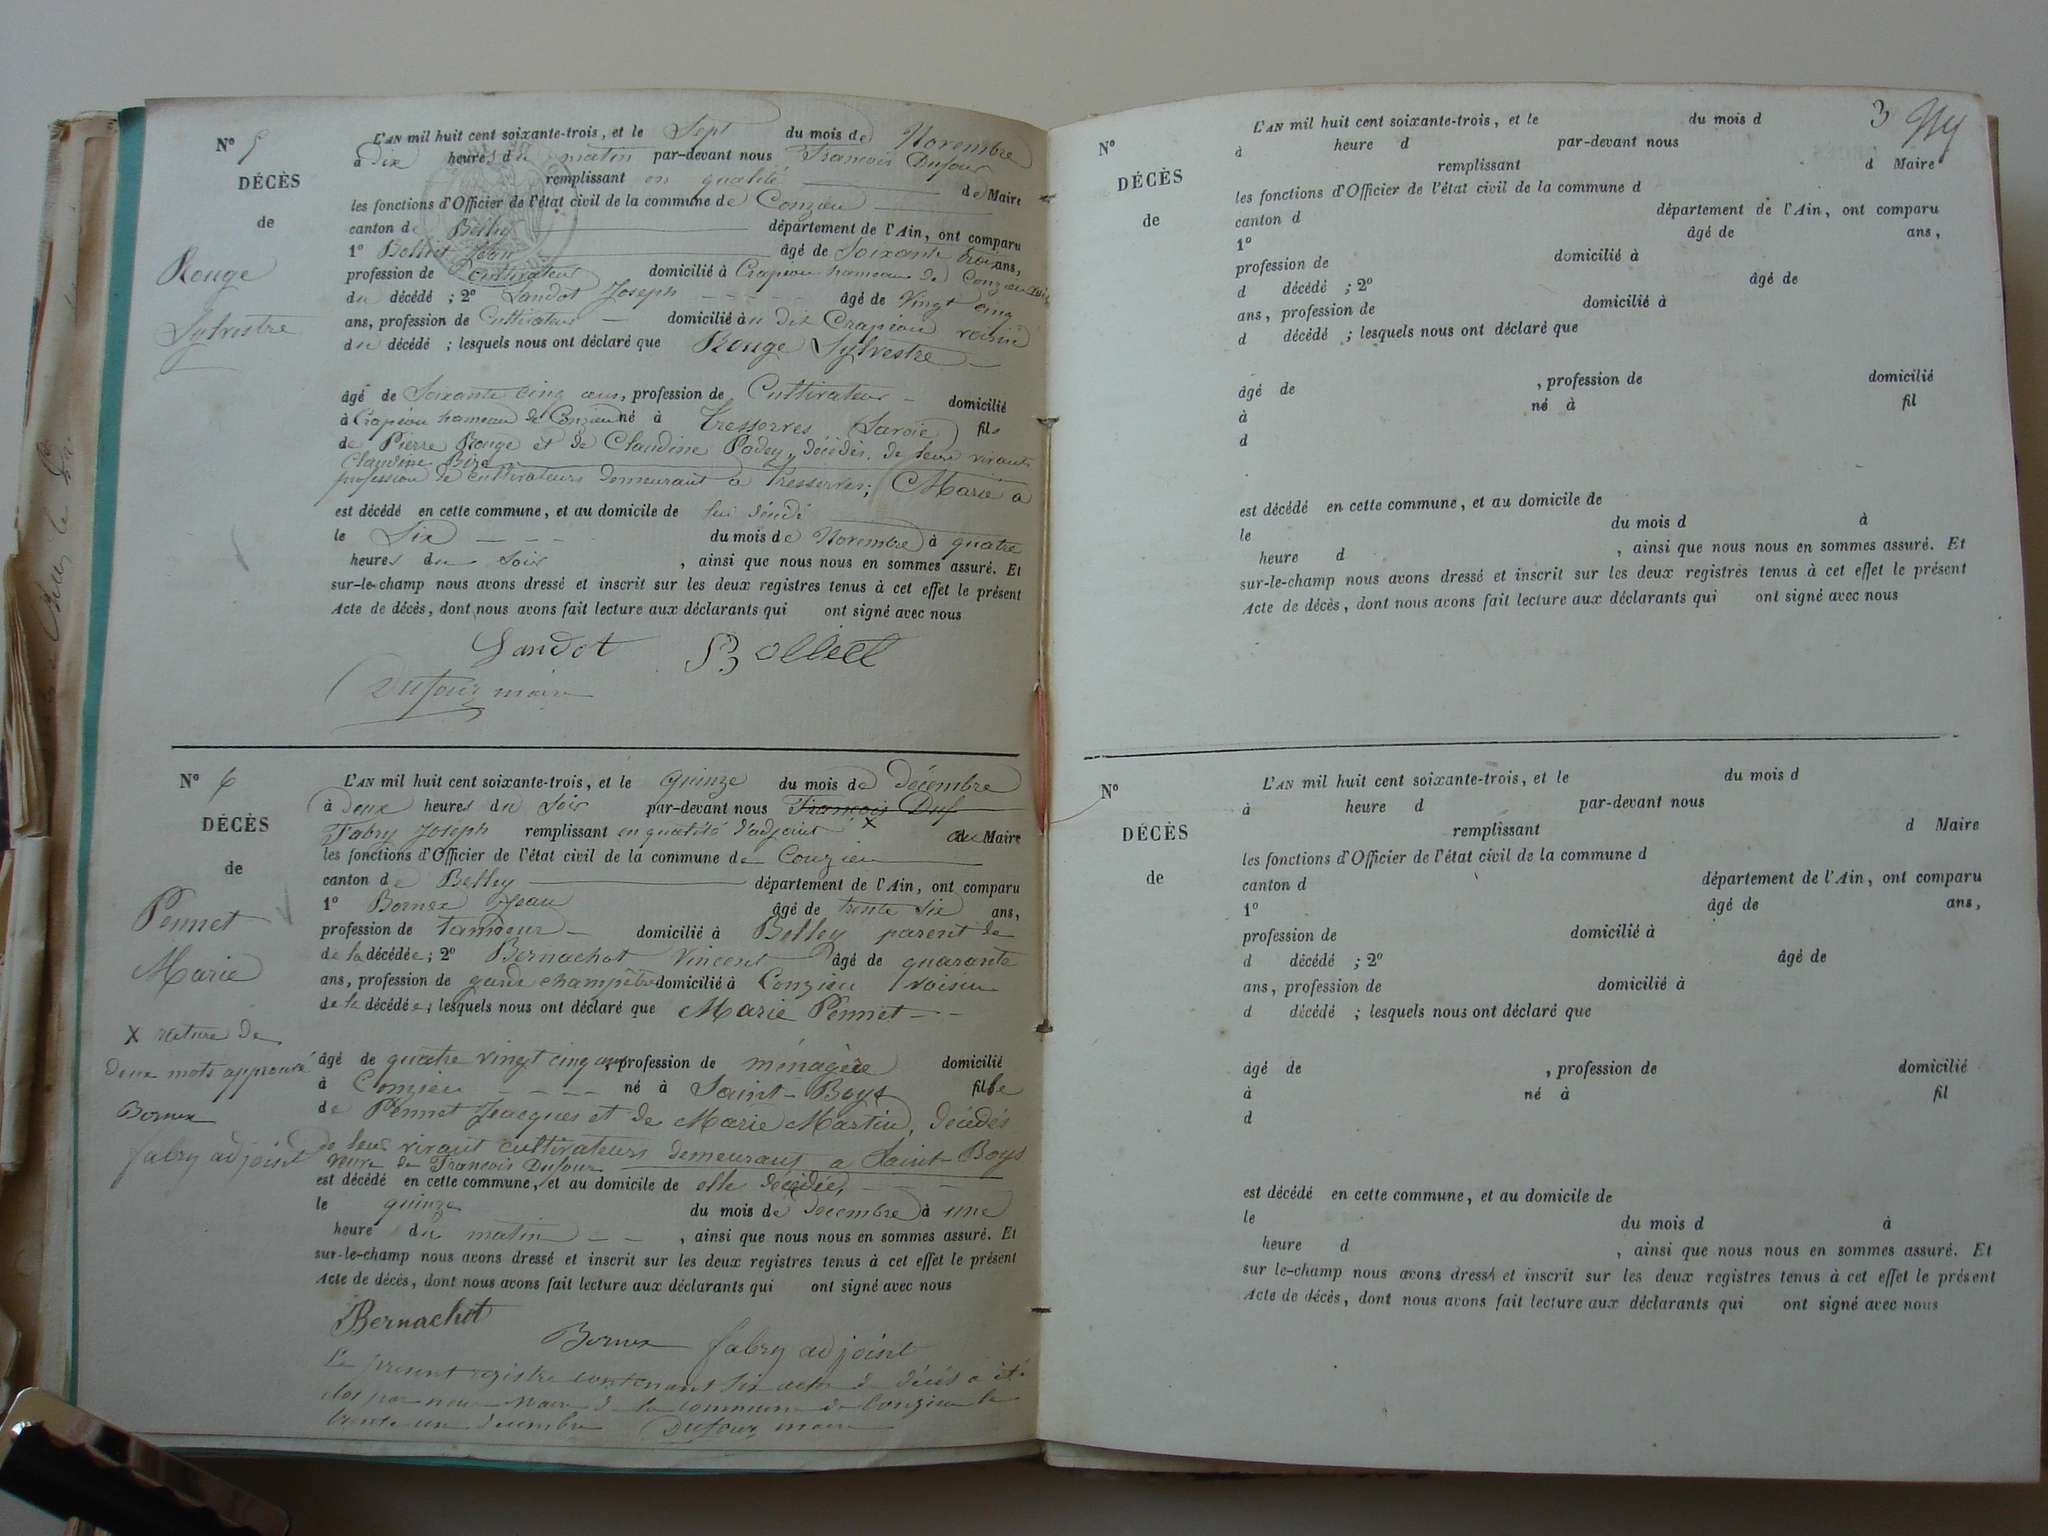 N° 5
DÉCÈS
de
Rouge
Sylvestre
L'AN mil huit cent soixante-trois, et le Sept du mois de Novembre
à dix heures du matin par-devant nous François Dufour
remplissant en qualité de Maire
les fonctions d'Officier de l'état civil de la commune de Conzieu
canton de Belley département de l'Ain, ont comparu
1° Bolliet âgé de Soixante trois ans,
profession de Cultivateur domicilié à Crapéou hameau de Conzieu
du décédé ; 2° Landot Joseph âgé de Vingt cinq
ans, profession de Cultivateur domicilié à u dit Crapéou voisin
du décédé ; lesquels nous ont déclaré que Rouge Sylvestre
âgé de Soixante cinq ans, profession de Cultivateur domicilié
à Crapéou hameau de Conzieu né à Tresserves (Savoie) fils
de Pierre Rouge et de Claudine Podey, décédés, de leur vivant
profession de cultivateurs demeurant à Tresserves; Marié à
Claudine
est décédé en cette commune, et au domicile de lui
le Six du mois de Novembre à quatre
heures du Soir, ainsi que nous nous en sommes assuré. Et
sur-le-champ nous avons dressé et inscrit sur les deux registres tenus à cet effet le présent
Acte de décès, dont nous avons fait lecture aux déclarants qui ont signé avec nous
Landot Bolliet
Dufour maire
N° 6
DÉCÈS
de
Pennet
Marie
X rature de
deux mots approuvé
Bornex
fabry adjoint
L'AN mil huit cent soixante-trois, et le quinze du mois de décembre
à deux heures du Soir par-devant nous François Duf
Fabry Joseph remplissant en qualité d'adjoint X au Maire
les fonctions d'Officier de l'état civil de la commune de Conzieu
canton de Belley département de l'Ain, ont comparu
1° Bornex Jean âgé de trente six ans,
profession de tanneur domicilié à Belley parent de
de la décédée; 2° Bernachot Vincent âgé de quarante
ans, profession de garde champêtre domicilié à Conzieu voisin
de la décédée; lesquels nous ont déclaré que Marie Pennet
âgé de quatre vingt cinq ans, profession de ménagère domicilié
à Conzieu né à Saint-Boys fille
de Pennet Jacques et de Marie Martin, décédés
de leur vivant cultivateurs demeurant à Saint-Boys
veuve de François Dufour
est décédé en cette commune, et au domicile de elle décédée,
le quinze du mois de décembre à une
heure du matin, ainsi que nous nous en sommes assuré. Et
sur-le-champ nous avons dressé et inscrit sur les deux registres tenus à cet effet le présent
Acte de décès, dont nous avons fait lecture aux déclarants qui ont signé avec nous
Bernachot
Bornex fabry adjoint
Le present registre contenant six actes de décès a été
clos par nous Maire de la commune de Conzieu le
trente un decembre Dufour maire
3
N°
DÉCÈS
de
L'AN mil huit cent soixante-trois, et le du mois d
à heure d par-devant nous
remplissant d Maire
les fonctions d'Officier de l'état civil de la commune d
canton d département de l'Ain, ont comparu
1° âgé de ans,
profession de domicilié à
d décédé ; 2° âgé de
ans, profession de domicilié à
d décédé ; lesquels nous ont déclaré que
âgé de , profession de domicilié
à né à fil
d
est décédé en cette commune, et au domicile de
le du mois d à
heure d , ainsi que nous nous en sommes assuré. Et
sur-le-champ nous avons dressé et inscrit sur les deux registres tenus à cet effet le présent
Acte de décès, dont nous avons fait lecture aux déclarants qui ont signé avec nous
N°
DÉCÈS
de
L'AN mil huit cent soixante-trois, et le du mois d
à heure d par-devant nous
remplissant d Maire
les fonctions d'Officier de l'état civil de la commune d
canton d département de l'Ain, ont comparu
1° âgé de ans,
profession de domicilié à
d décédé ; 2° âgé de
ans, profession de domicilié à
d décédé ; lesquels nous ont déclaré que
âgé de , profession de domicilié
à né à fil
d
est décédé en cette commune, et au domicile de
le du mois d à
heure d , ainsi que nous nous en sommes assuré. Et
sur le-champ nous avons dressé et inscrit sur les deux registres tenus à cet effet le présent
Acte de décès, dont nous avons fait lecture aux déclarants qui ont signé avec nous